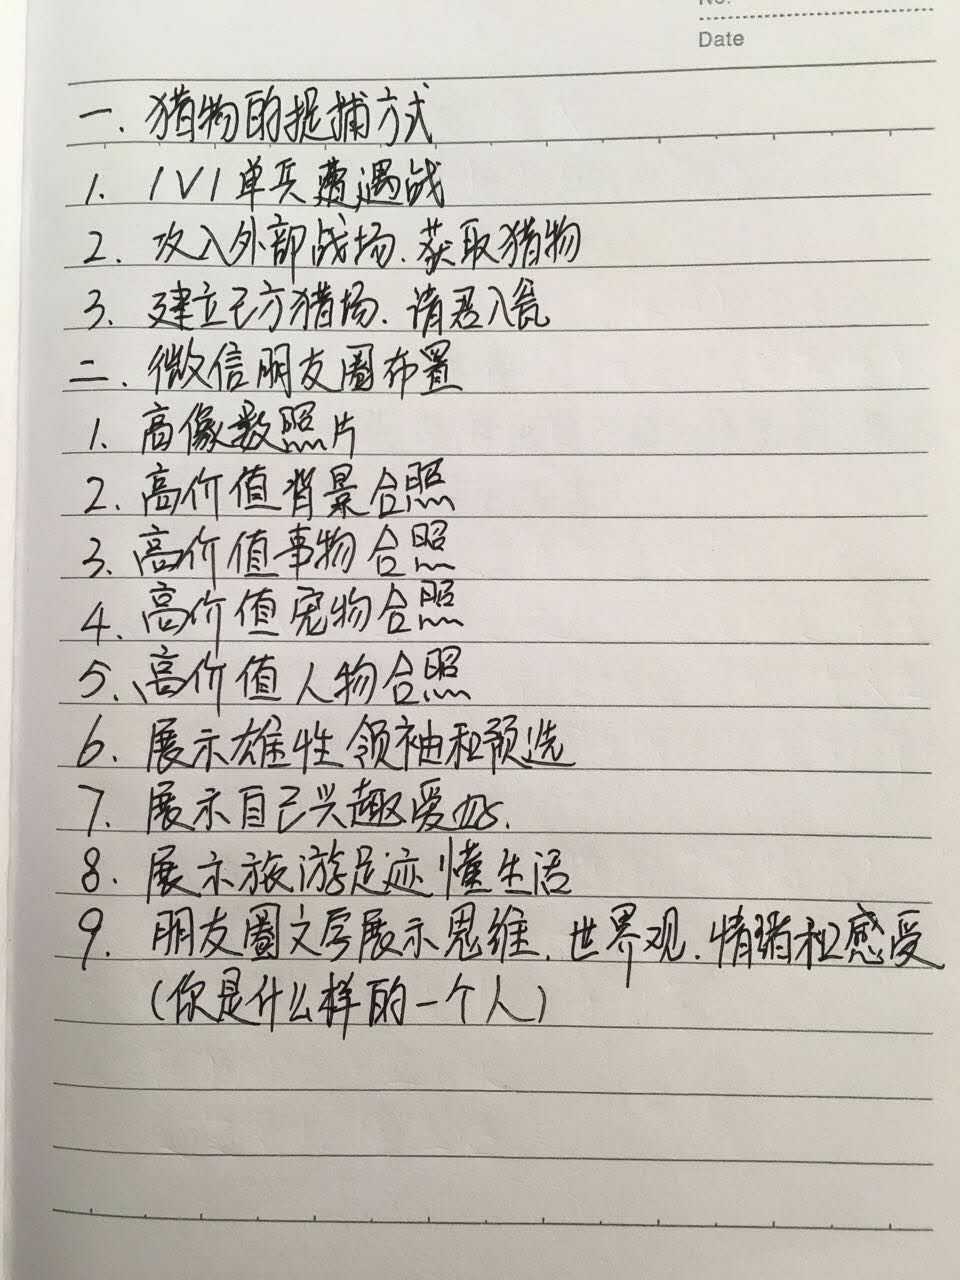 No.
Date
一.猎物的捉捕方式
1. 1V1单兵遭遇战
2. 攻入外部战场.获取猎物
3. 建立己方猎场.请君入瓮
二.微信朋友圈布置
1. 高像数照片
2. 高价值背景合照
3. 高价值事物合照
4. 高价值宠物合照
5. 高价值人物合照
6. 展示雄性领袖和预选
7. 展示自己兴趣爱好.
8. 展示旅游足迹懂生活
9. 朋友圈文字展示思维.世界观.情绪和感受
(你是什么样的一个人)